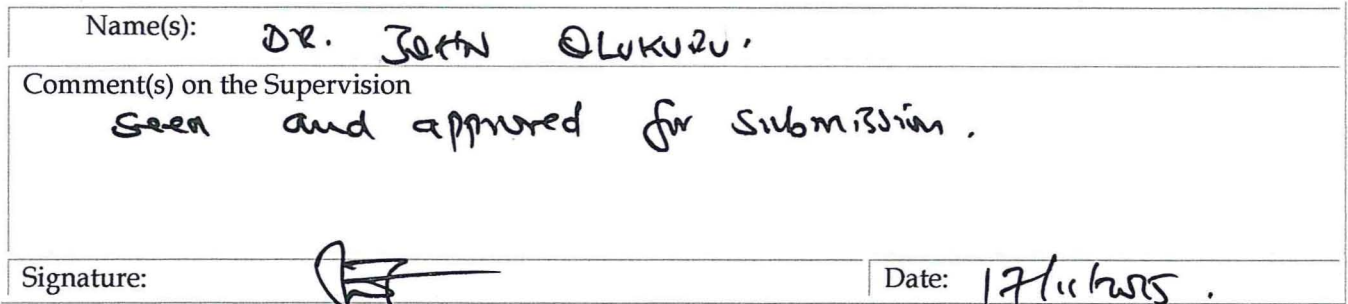 Name(s): DR. JOHN OLUKURU.
Comment(s) on the Supervision
Seen and approved for submission.
Signature:
Date: 17/11/2025.